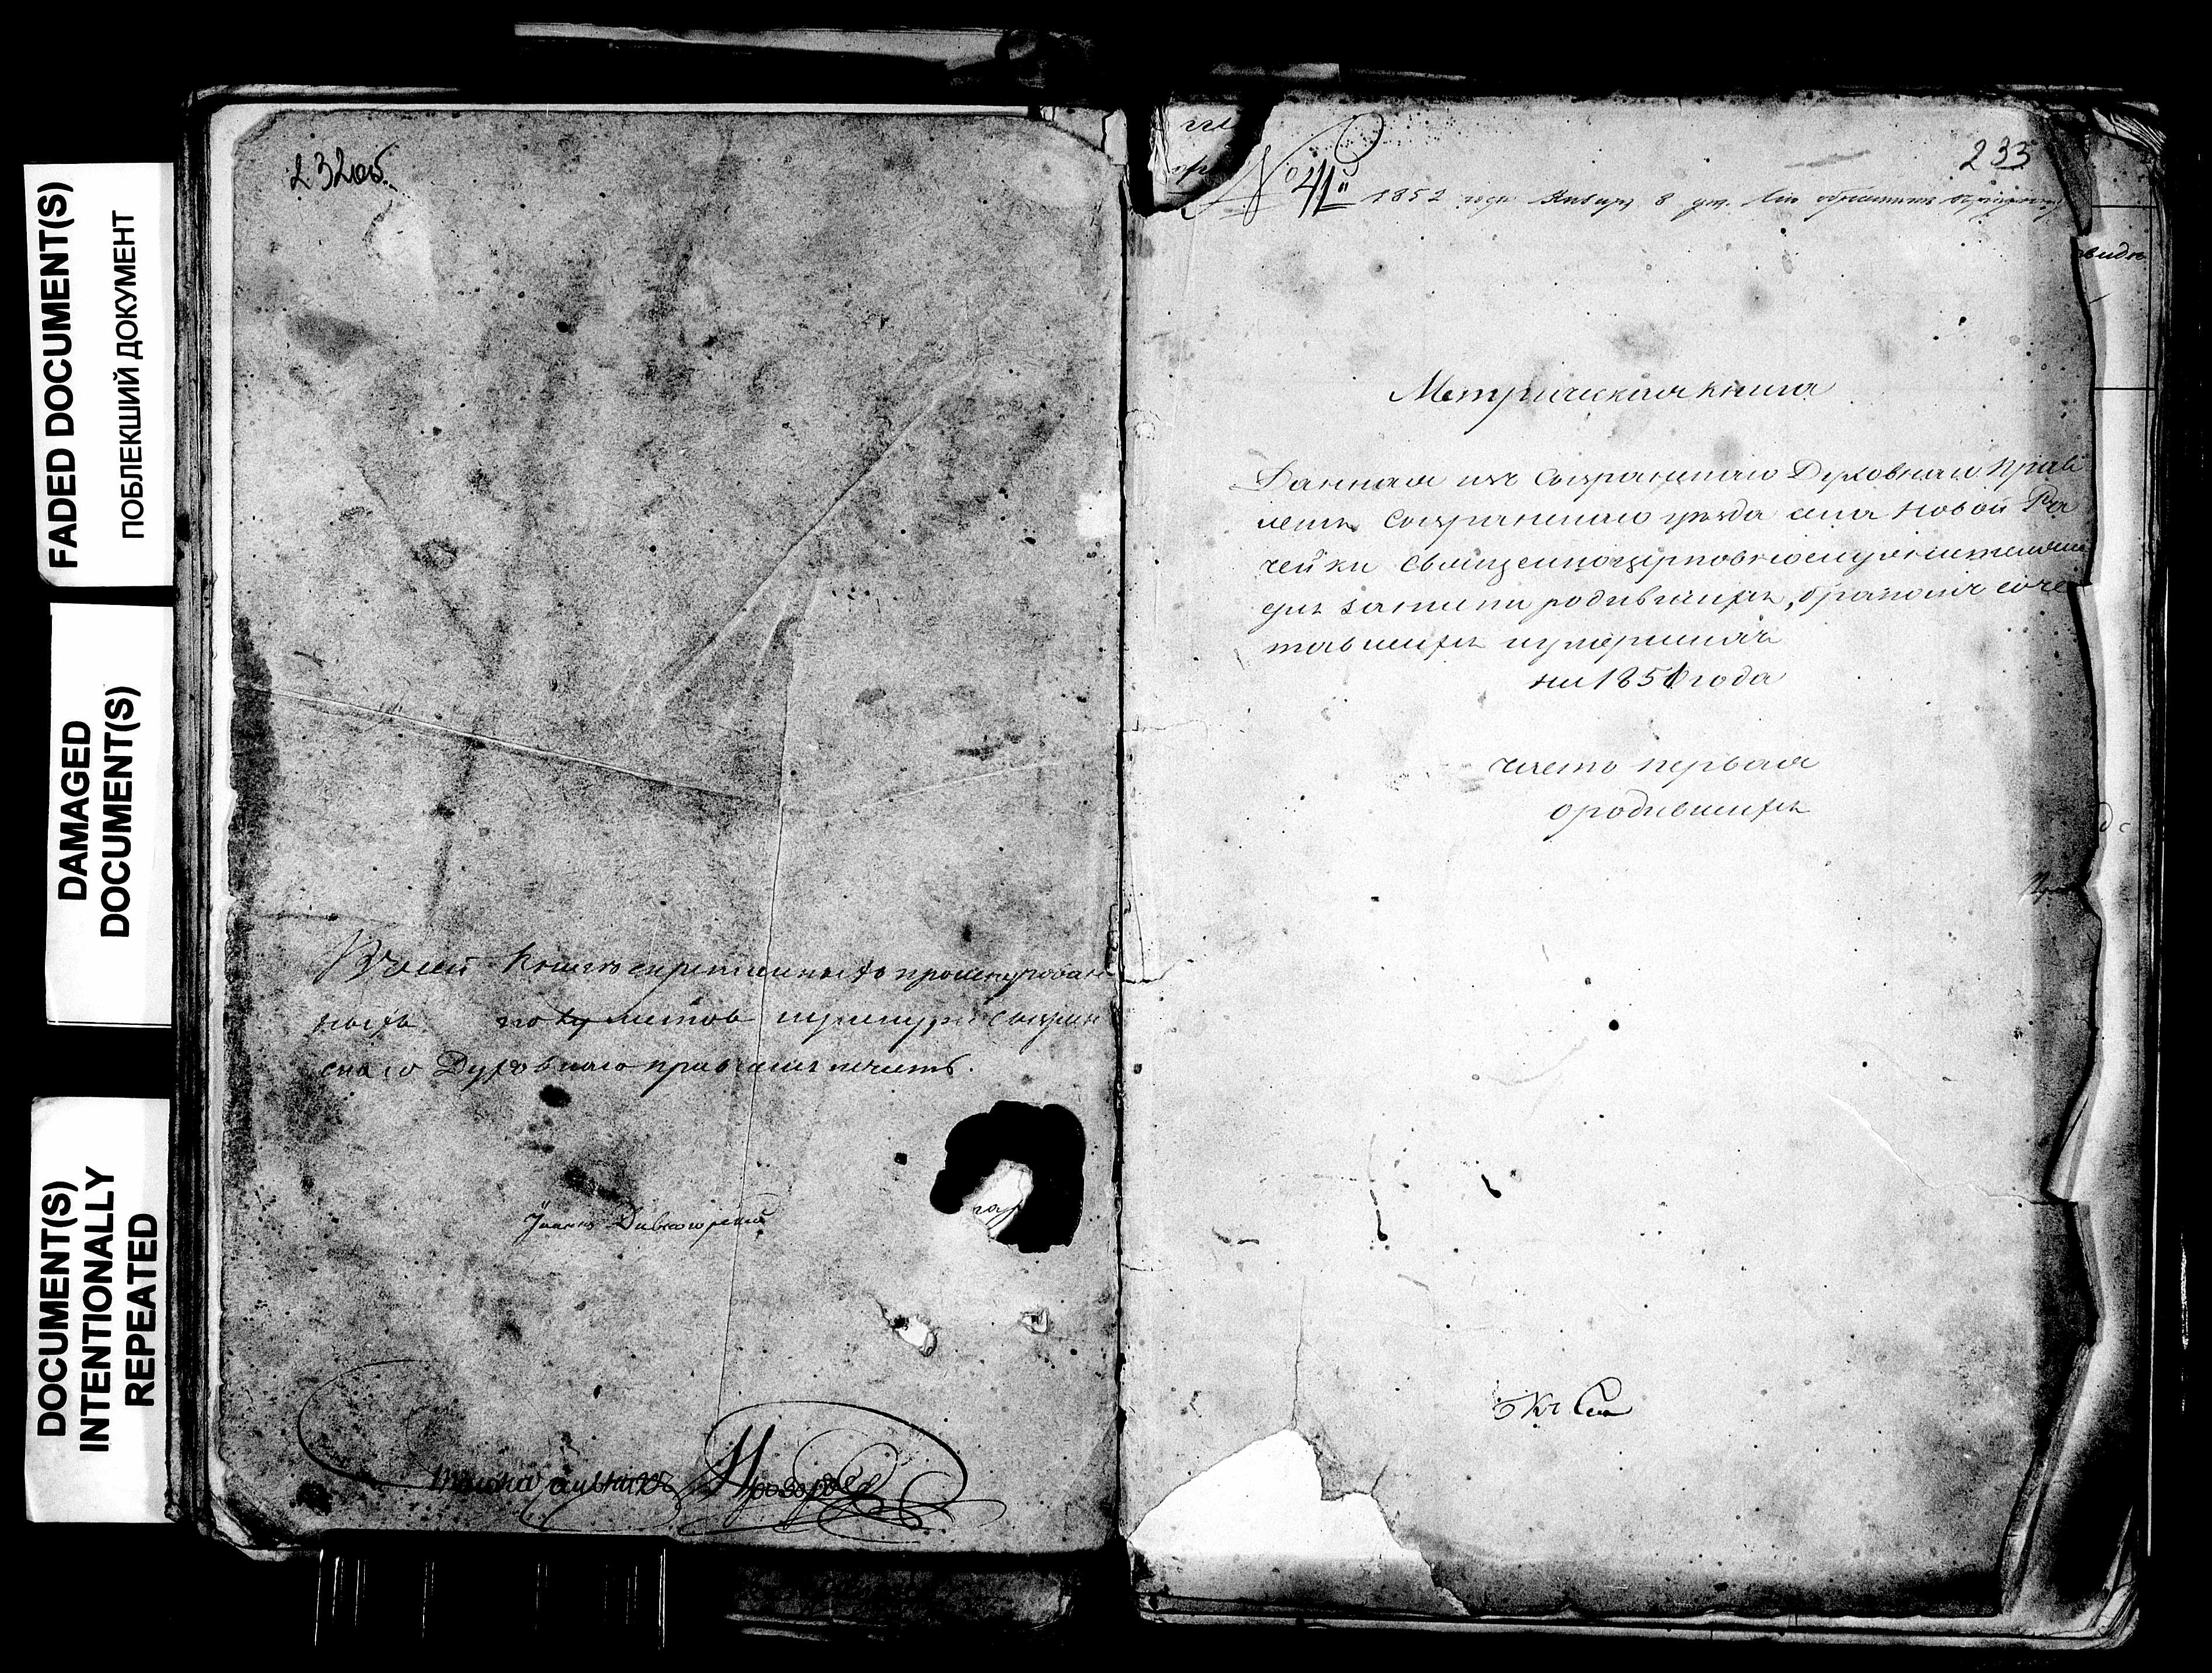 FADED DOCUMENT(S)
ПОБЛЕКШИЙ ДОКУМЕНТ
DAMAGED
DOCUMENT(S)
DOCUMENT(S)
INTENTIONALLY
REPEATED
232об.
В сей книге скрепленныхъ прошнурован
ныхъ листов Сызран
скаго Духовнаго правления печать.
Iоаннъ Дивногорский
233
№ 41й 1852 года Января 8 дня
Метрическая книга
Данная изъ Сызранскаго Духовнаго Прав
ления Сызранскаго уезда села Новой Ра
чейки Священноцерковнослужителямъ
для записи родившихся, бракомъ соче
тавшихся и умершихъ
на 1851 года
часть первая
о родившихся